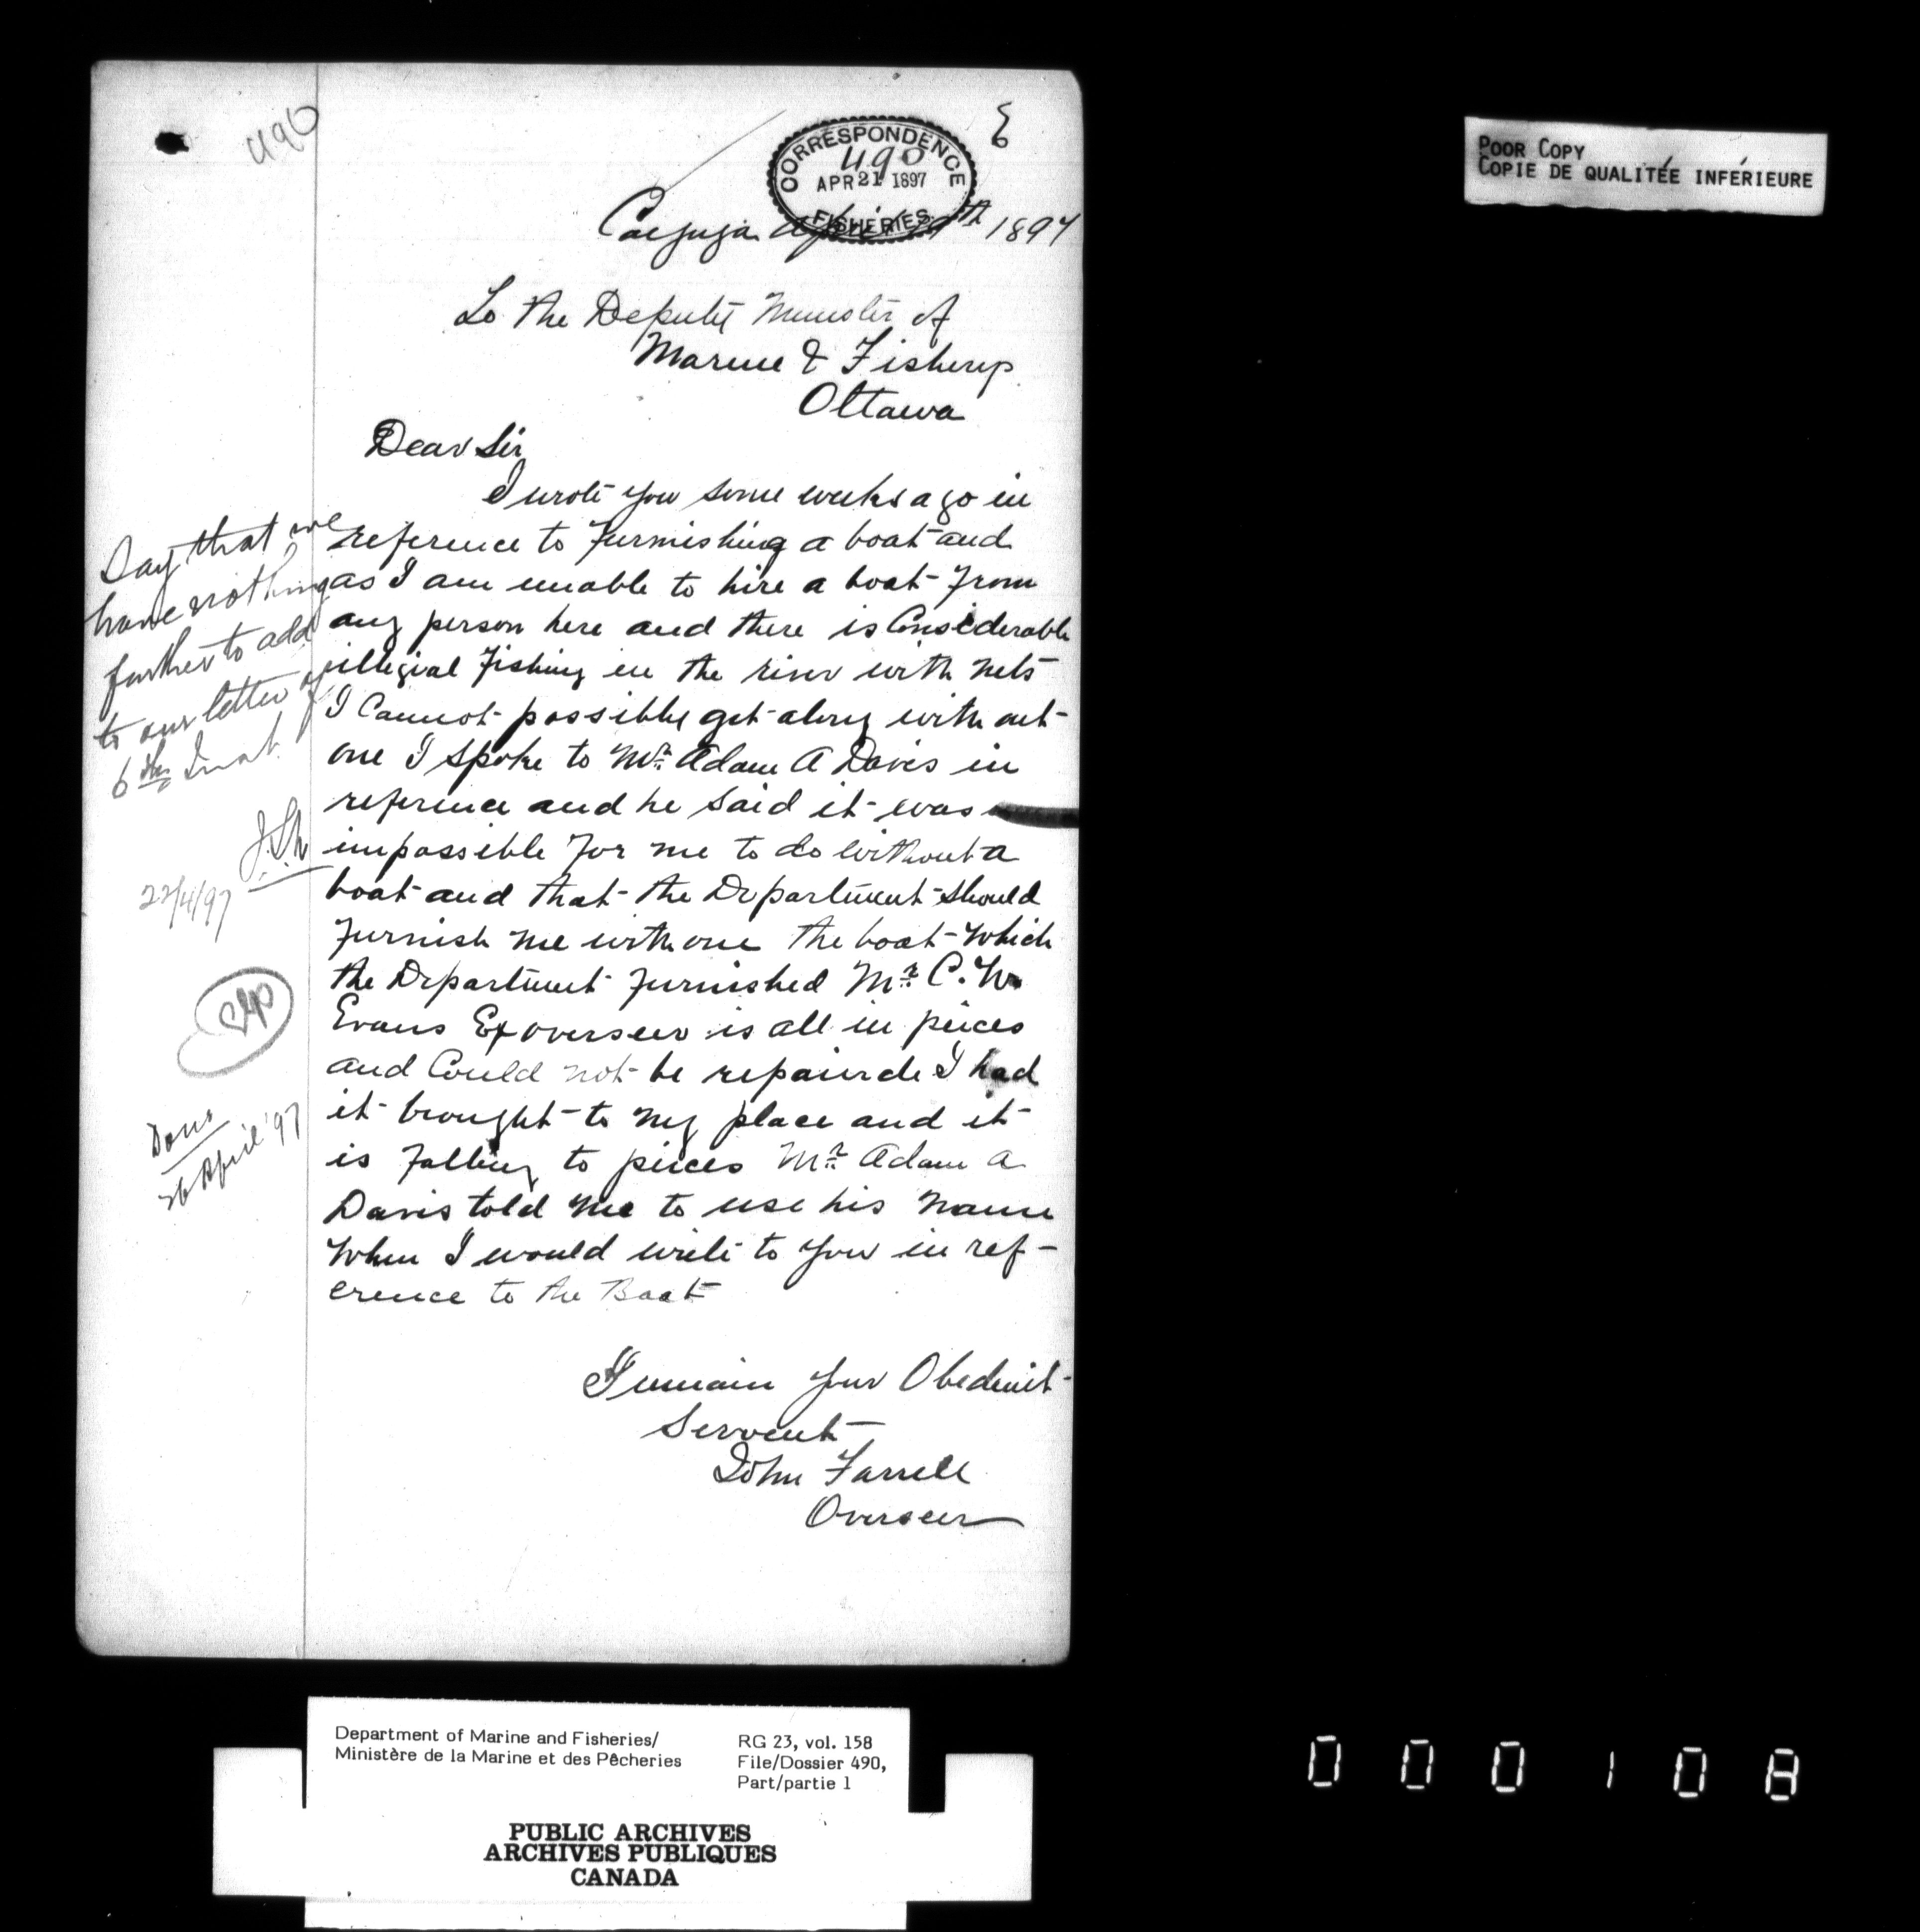 490
CORRESPONDENCE
490
APR 21 1897
FISHERIES
Cayuga April 19th 1897
To the Deputy Minister of
Marine & Fisherys
Ottawa
Dear Sir
I wrote you some weeks ago in
reference to Furnishing a boat and
as I am unable to hire a boat From
any person here and there is Considerable
illegial Fishing in the river with nets
I Cannot possibly get along with out
one I spoke to Mr. Adam A Davis in
reference and he Said it was
impossible For me to do without a
boat and that the Department Should
Furnish me with one the boat which
the Department Furnished Mr. C. W.
Evans Ex overseer is all in peices
and Could not be repairde I had
it brought to my place and it
is Falling to peices Mr. Adam A
Davis told me to use his name
When I would write to you in ref-
erence to the Boat
I remain your Obedient
Servent
John Farrell
Overseer
Say that we
have nothing
further to add
to our letter of
6th Inst.
22/4/97
Done
26 April '97
POOR COPY
COPIE DE QUALITÉE INFÉRIEURE
Department of Marine and Fisheries/
Ministère de la Marine et des Pêcheries
RG 23, vol. 158
File/Dossier 490,
Part/partie 1
PUBLIC ARCHIVES
ARCHIVES PUBLIQUES
CANADA
000108